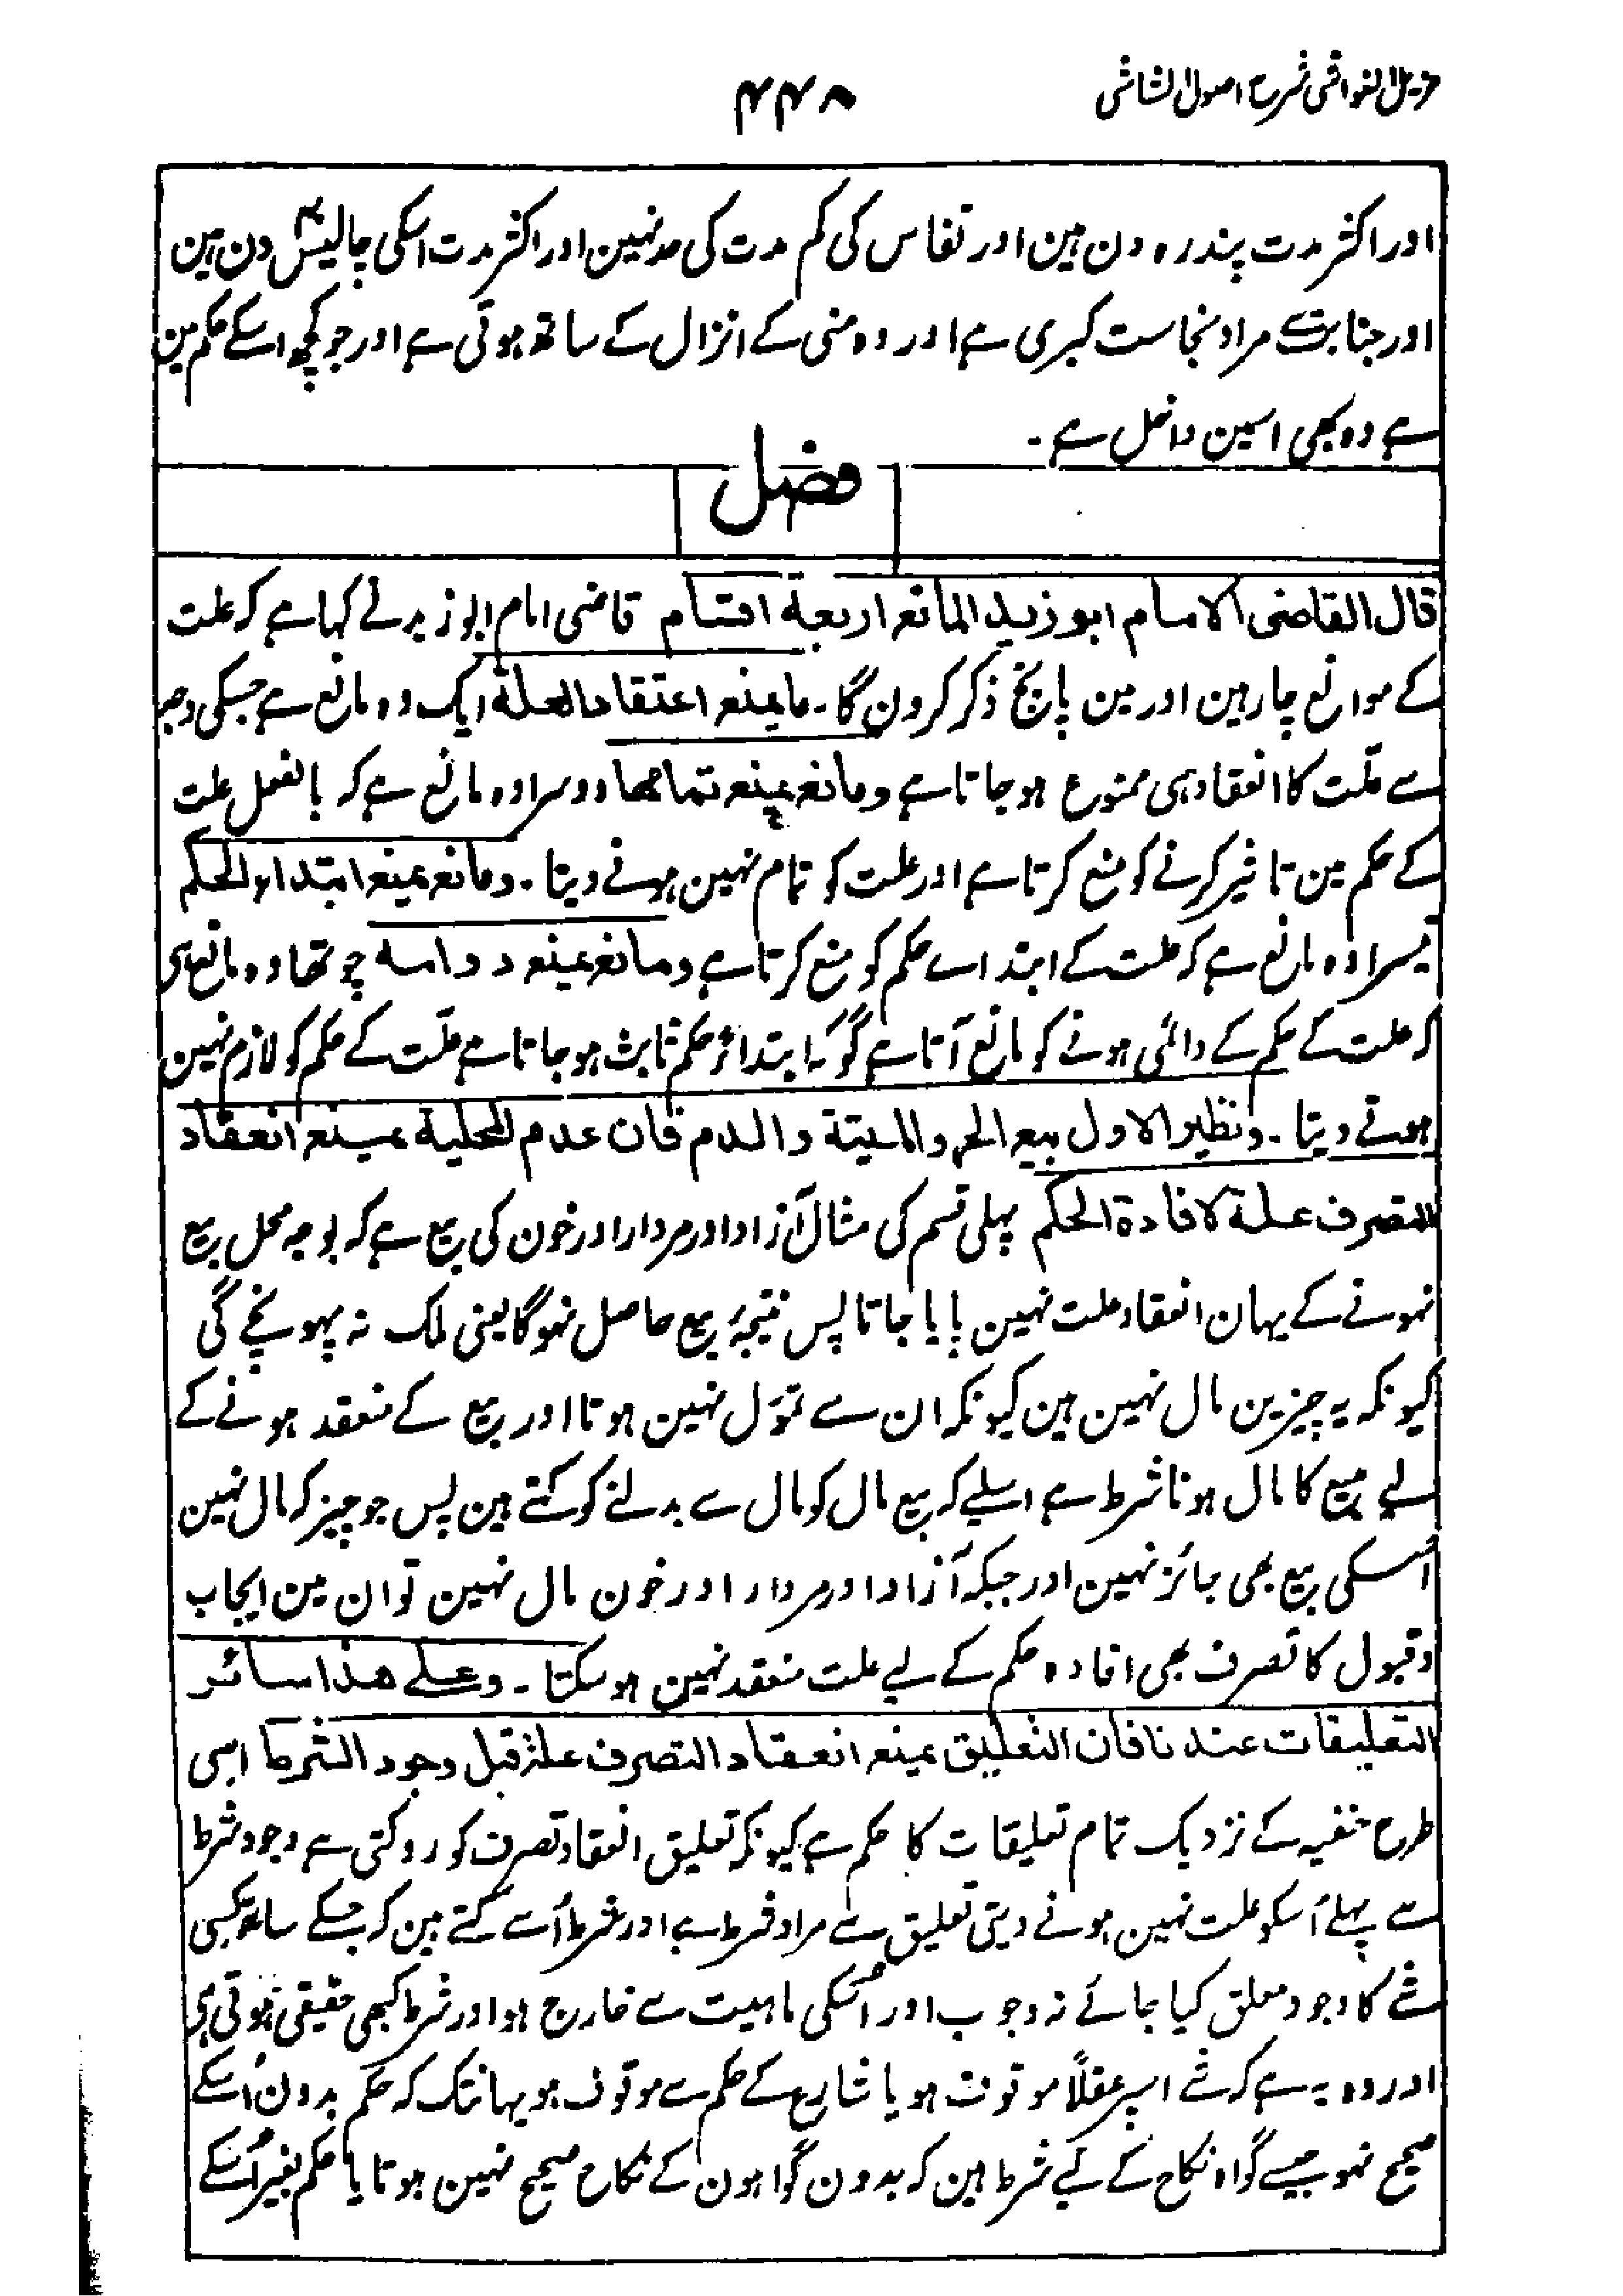 مزیل الغواشی شرح اصول الشاشی
۴۴۸
اور اکثر مدت پندرہ دن ہین اور نفاس کی کم مدت کی حد نہین اور اکثر مدت اسکی چالیس۴۰ دن ہین
اور جنابت سے مراد نجاست کبری ہے اور وہ منی کے انزال کے ساتھ ہوتی ہے اور جو کچھ اسکے حکم مین
ہے وہ بھی اسمین داخل ہے ۔
فصل
قال القاضی الامام ابو زید الموانع اربعة اقسام قاضی امام ابو زید نے کہا ہے کہ علت
کے موانع چار ہین اور مین پانچ ذکر کرون گا۔ مانع یمنع انعقاد العلة ایک وہ مانع ہے جسکی وجہ
سے علّت کا انعقاد ہی ممنوع ہو جاتا ہے ومانع یمنع تمامها دوسرا وہ مانع ہے کہ بالفعل علت
کے حکم مین تاثیر کرنے کو منع کرتا ہے اور علت کو تمام نہین ہونے دیتا ۔ ومانع یمنع ابتداء الحکم
تیسرا وہ مانع ہے کہ علت کے ابتداے حکم کو منع کرتا ہے ومانع یمنع دوامه چوتھا وہ مانع ہی
کہ علت کے حکم کے دائمی ہونے کو مانع آتا ہے گو کہ ابتداءً حکم ثابت ہو جاتا ہے علّت کے حکم کو لازم نہین
ہونے دیتا ۔ ونظیر الاول بیع الحر والمیتة والدم فان عدم المحلیة یمنع انعقاد
التصرف علة لافادة الحکم پہلی قسم کی مثال آزاد اور مردار اور خون کی بیع ہے کہ بوجہ محل بیع
نہونے کے یہان انعقاد علت نہین پایا جاتا پس نتیجۂ بیع حاصل نہوگا یعنی ملک نہ پہونچے گی
کیونکہ یہ چیزین مال نہین ہین کیونکہ ان سے تموّل نہین ہوتا اور بیع کے منعقد ہونے کے
لیے مبیع کا مال ہونا شرط ہے اسلیے کہ بیع مال کو مال سے بدلنے کو کہتے ہین پس جو چیز کہ مال نہین
اُسکی بیع بھی جائز نہین اور جبکہ آزاد اور مردار اور خون مال نہین تو ان مین ایجاب
وقبول کا تصرف بھی افادہ حکم کے لیے علت منعقد نہین ہو سکتا ۔ وعلے هذا سائر
التعلیقات عندنا فان التعلیق یمنع انعقاد التصرف علة قبل وجود الشرط اسی
طرح حنفیہ کے نزدیک تمام تعلیقات کا حکم ہے کیونکہ تعلیق انعقاد تصرف کو روکتی ہے وجود شرط
سے پہلے اُسکو علت نہین ہونے دیتی تعلیق سے مراد شرط ہے اور شرط اُسے کہتے ہین کہ جسکے ساتھ کسی
شے کا وجود معلق کیا جائے نہ وجوب اور اُسکی ماہیت سے خارج ہو اور شرط کبھی حقیقی ہوتی ہی
اور وہ یہ ہے کہ شے اسپر عقلاً موقوف ہو یا شارع کے حکم سے موقوف ہو یہانتک کہ حکم بدون اُسکے
صحیح نہو جیسے گواہ نکاح کے لیے شرط ہین کہ بدون گواہون کے نکاح صحیح نہین ہوتا یا حکم بغیر اُسکے